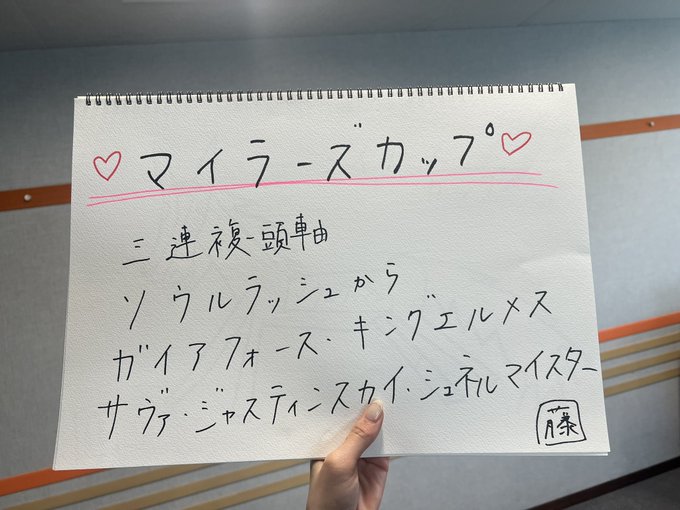 ♡マイラーズカップ♡
三連複一頭軸
ソウルラッシュから
ガイアフォース・キングエルメス
サヴァ・ジャスティンスカイ・シュネルマイスター
藤